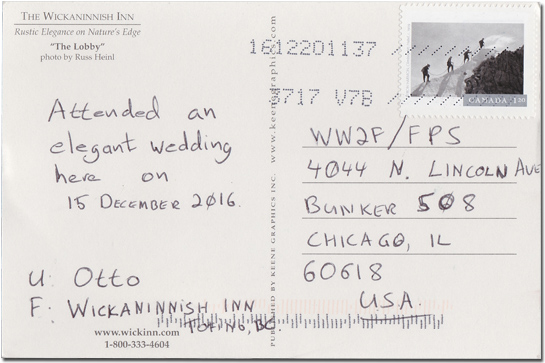 THE WICKANINNISH INN
Rustic Elegance on Nature's Edge
"The Lobby"
photo by Russ Heinl
1612201137
3717 V7B
CANADA
Attended an
elegant wedding
here on
15 DECEMBER 2016.
U: Otto
F: WICKANINNISH INN
TOFINO, BC.
www.wickinn.com
1-800-333-4604
PUBLISHED BY KEENE GRAPHICS INC. www.keenegraphics.com
WW2F/FPS
4044 N. LINCOLN AVE
BUNKER 508
CHICAGO, IL
60618
U.S.A.